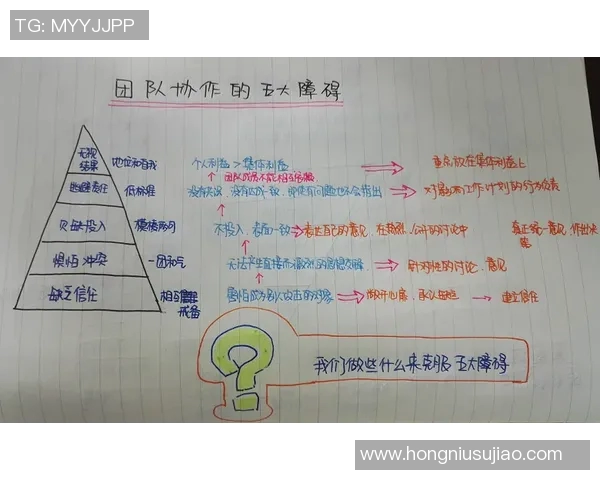 TG: MYYJJPP
团队协作的五大障碍
无视结果 地位和自我 个人利益 > 集体利益 重点放在集体利益上
团队成员不能相互
逃避责任 低标准 没有达成一致，即使有问题也不会指出 对影响工作计划的行为负责
欠缺投入 模棱两可 不投入，表面一致 表达自己的意见，在 公开的讨论中 真正统一意见，作出决策
惧怕冲突 一团和气 无法产生直接而激烈的思想交锋 针对性的讨论，意见
缺乏信任 相互 戒备 害怕成为别人攻击的对象 敞开心扉，承认缺陷 建立信任
我们做些什么来克服五大障碍
www.hongniusujiao.com